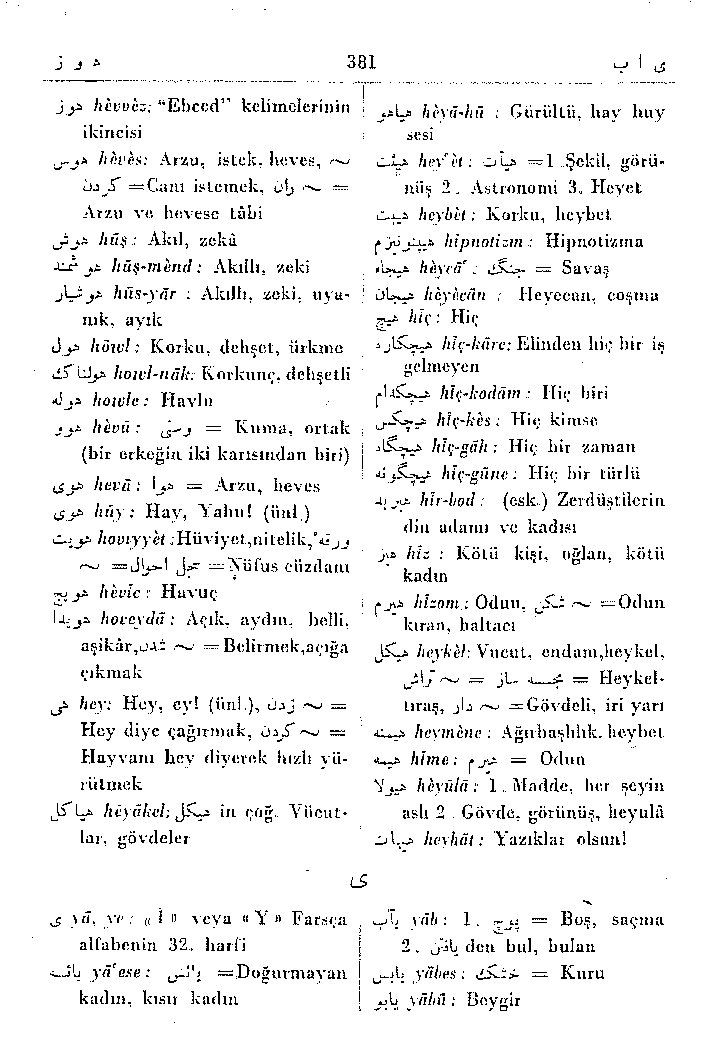 هوز 381 یاب
هوز hèvvèz: “Ebced” kelimelerinin
ikincisi
هوس hèvès: Arzu, istek, heves, ~
کردن =Canı istemek, ران ~ =
Arzu ve hevese tâbi
هوش hûş: Akıl, zekâ
هوشمند hûş-mènd: Akıllı, zeki
هوشیار hûs-yār : Akıllı, zeki, uya-
nık, ayık
هول hôwl: Korku, dehşet, ürkme
هولناک howl-nāk: Korkunç, dehşetli
هوله howle: Havlu
هوو hèvû: وسنی = Kuma, ortak
(bir erkeğin iki karısından biri)
هوی hevā: هوا = Arzu, heves
هوی hûy: Hay, Yahu! (ünl.)
هویت hoviyyèt: Hüviyet,nitelik, ورقه
~ =سجل احوال =Nüfus cüzdanı
هویج hèvîc: Havuç
هویدا hoveydā: Açık, aydın, belli,
aşikâr, شدن ~ =Belirmek,açığa
çıkmak
هی hey: Hey, ey! (ünl.), زدن ~ =
Hey diye çağırmak, کردن ~ =
Hayvanı hey diyerek hızlı yü-
rütmek
هیاکل hèyākel: هیکل in çoğ. Vücut-
lar, gövdeler
هیاهو hèyā-hû : Gürültü, hay huy
sesi
هیئت hey'èt: هیأت =1. Şekil, görü-
nüş 2. Astronomi 3. Heyet
هیبت heybèt: Korku, heybet
هیپنوتیزم hipnotizm: Hipnotizma
هیجاء hèycā': جنگ = Savaş
هیجان hèyècān : Heyecan, coşma
هیچ hîç: Hiç
هیچکاره hîç-kāre: Elinden hiç bir iş
gelmeyen
هیچکدام hîç-kodām: Hiç biri
هیچکس hîç-kès: Hiç kimse
هیچگاه hîç-gāh: Hiç bir zaman
هیچگونه hîç-gûne: Hiç bir türlü
هیربد hîr-bod: (esk.) Zerdüştîlerin
din adamı ve kadısı
هیز hîz : Kötü kişi, oğlan, kötü
kadın
هیزم hîzom: Odun, شکن ~ =Odun
kıran, baltacı
هیکل heykèl: Vücut, endam,heykel,
تراش ~ = مجسمه ساز = Heykel-
tıraş, دار ~ =Gövdeli, iri yarı
هیمنه heymène: Ağırbaşlılık, heybet
هیمه hîme: هیزم = Odun
هیولا hèyûlā: 1. Madde, her şeyin
aslı 2. Gövde, görünüş, heyulâ
هیهات heyhāt: Yazıklar olsun!
ی
ی yā, ye: « İ » veya « Y » Farsça
alfabenin 32. harfi
یائسه yā'ese: یائس =Doğurmayan
kadın, kısır kadın
یاب yāb: 1. پوچ = Boş, saçma
2. یافتن den bul, bulan
یابس yābes: خشک = Kuru
یابو yābû: Beygir